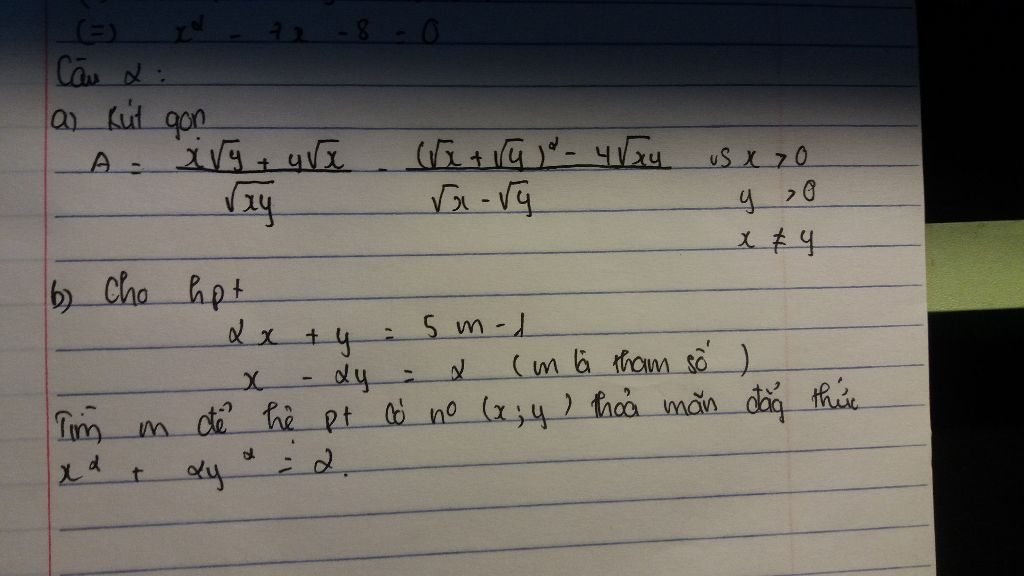 (=) x² - 7x - 8 = 0
Câu 2 :
a) Rút gọn
A = x√y + y√x / √xy - (√x + √y)² - 4√xy / √x - √y vs x > 0
y > 0
x ≠ y
b) Cho hpt
2x + y = 5m - 1
x - 2y = 2 (m là tham số)
Tìm m để hệ pt có n⁰ (x;y) thoả mãn đẳg thức
x² + 2y² = 2.